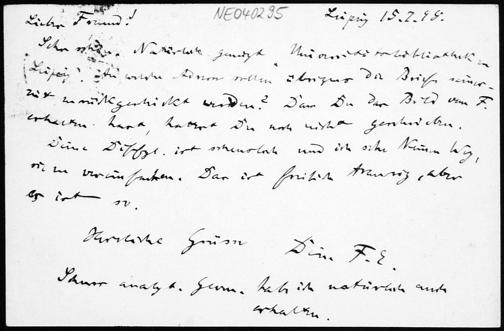 NE040295
Leipzig 15.2.99.
Lieber Freund!
Sehr schön. Natürlich genügt „Universitätsbibliothek in
Leipzig". An welche Adresse sollen übrigens die Briefe seiner-
zeit zurückgeschickt werden? Dass Du das Bild von F.
erhalten hast, hattest Du noch nicht geschrieben.
Deine Diffgl. ist scheusslich und ich sehe keinen Weg,
sie zu vereinfachen. Das ist freilich traurig, aber
es ist so.
Herzliche Grüsse Dein F. E.
analyt. Geom. hab ich natürlich auch
erhalten.